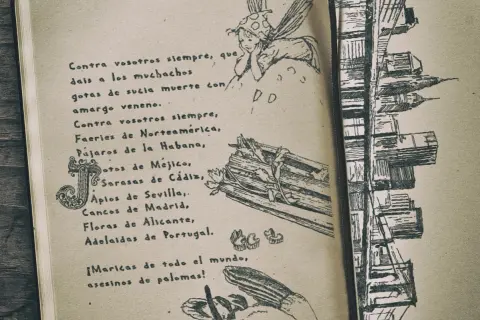 Contra vosotros siempre, que
dais a los muchachos
gotas de sucia muerte con
amargo veneno.
Contra vosotros siempre,
Faeries de Norteamérica,
Pájaros de la Habana,
Jotos de Méjico,
Sarasas de Cádiz,
Apios de Sevilla,
Cancos de Madrid,
Floras de Alicante,
Adelaidas de Portugal.
¡Maricas de todo el mundo,
asesinos de palomas!